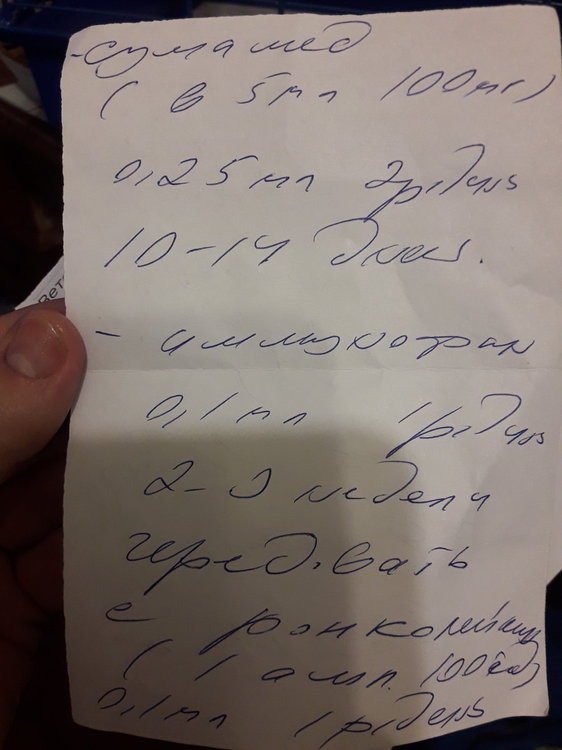 -сумамед
( в 5мл 100мг)
0,25мл 2р/день
10-14 дней.
- иммунофан
0,1мл 1р/день
2-3 недели
чередовать
с ронколейкин
( 1 амп. 100 ед)
0,1мл 1р/день
вет